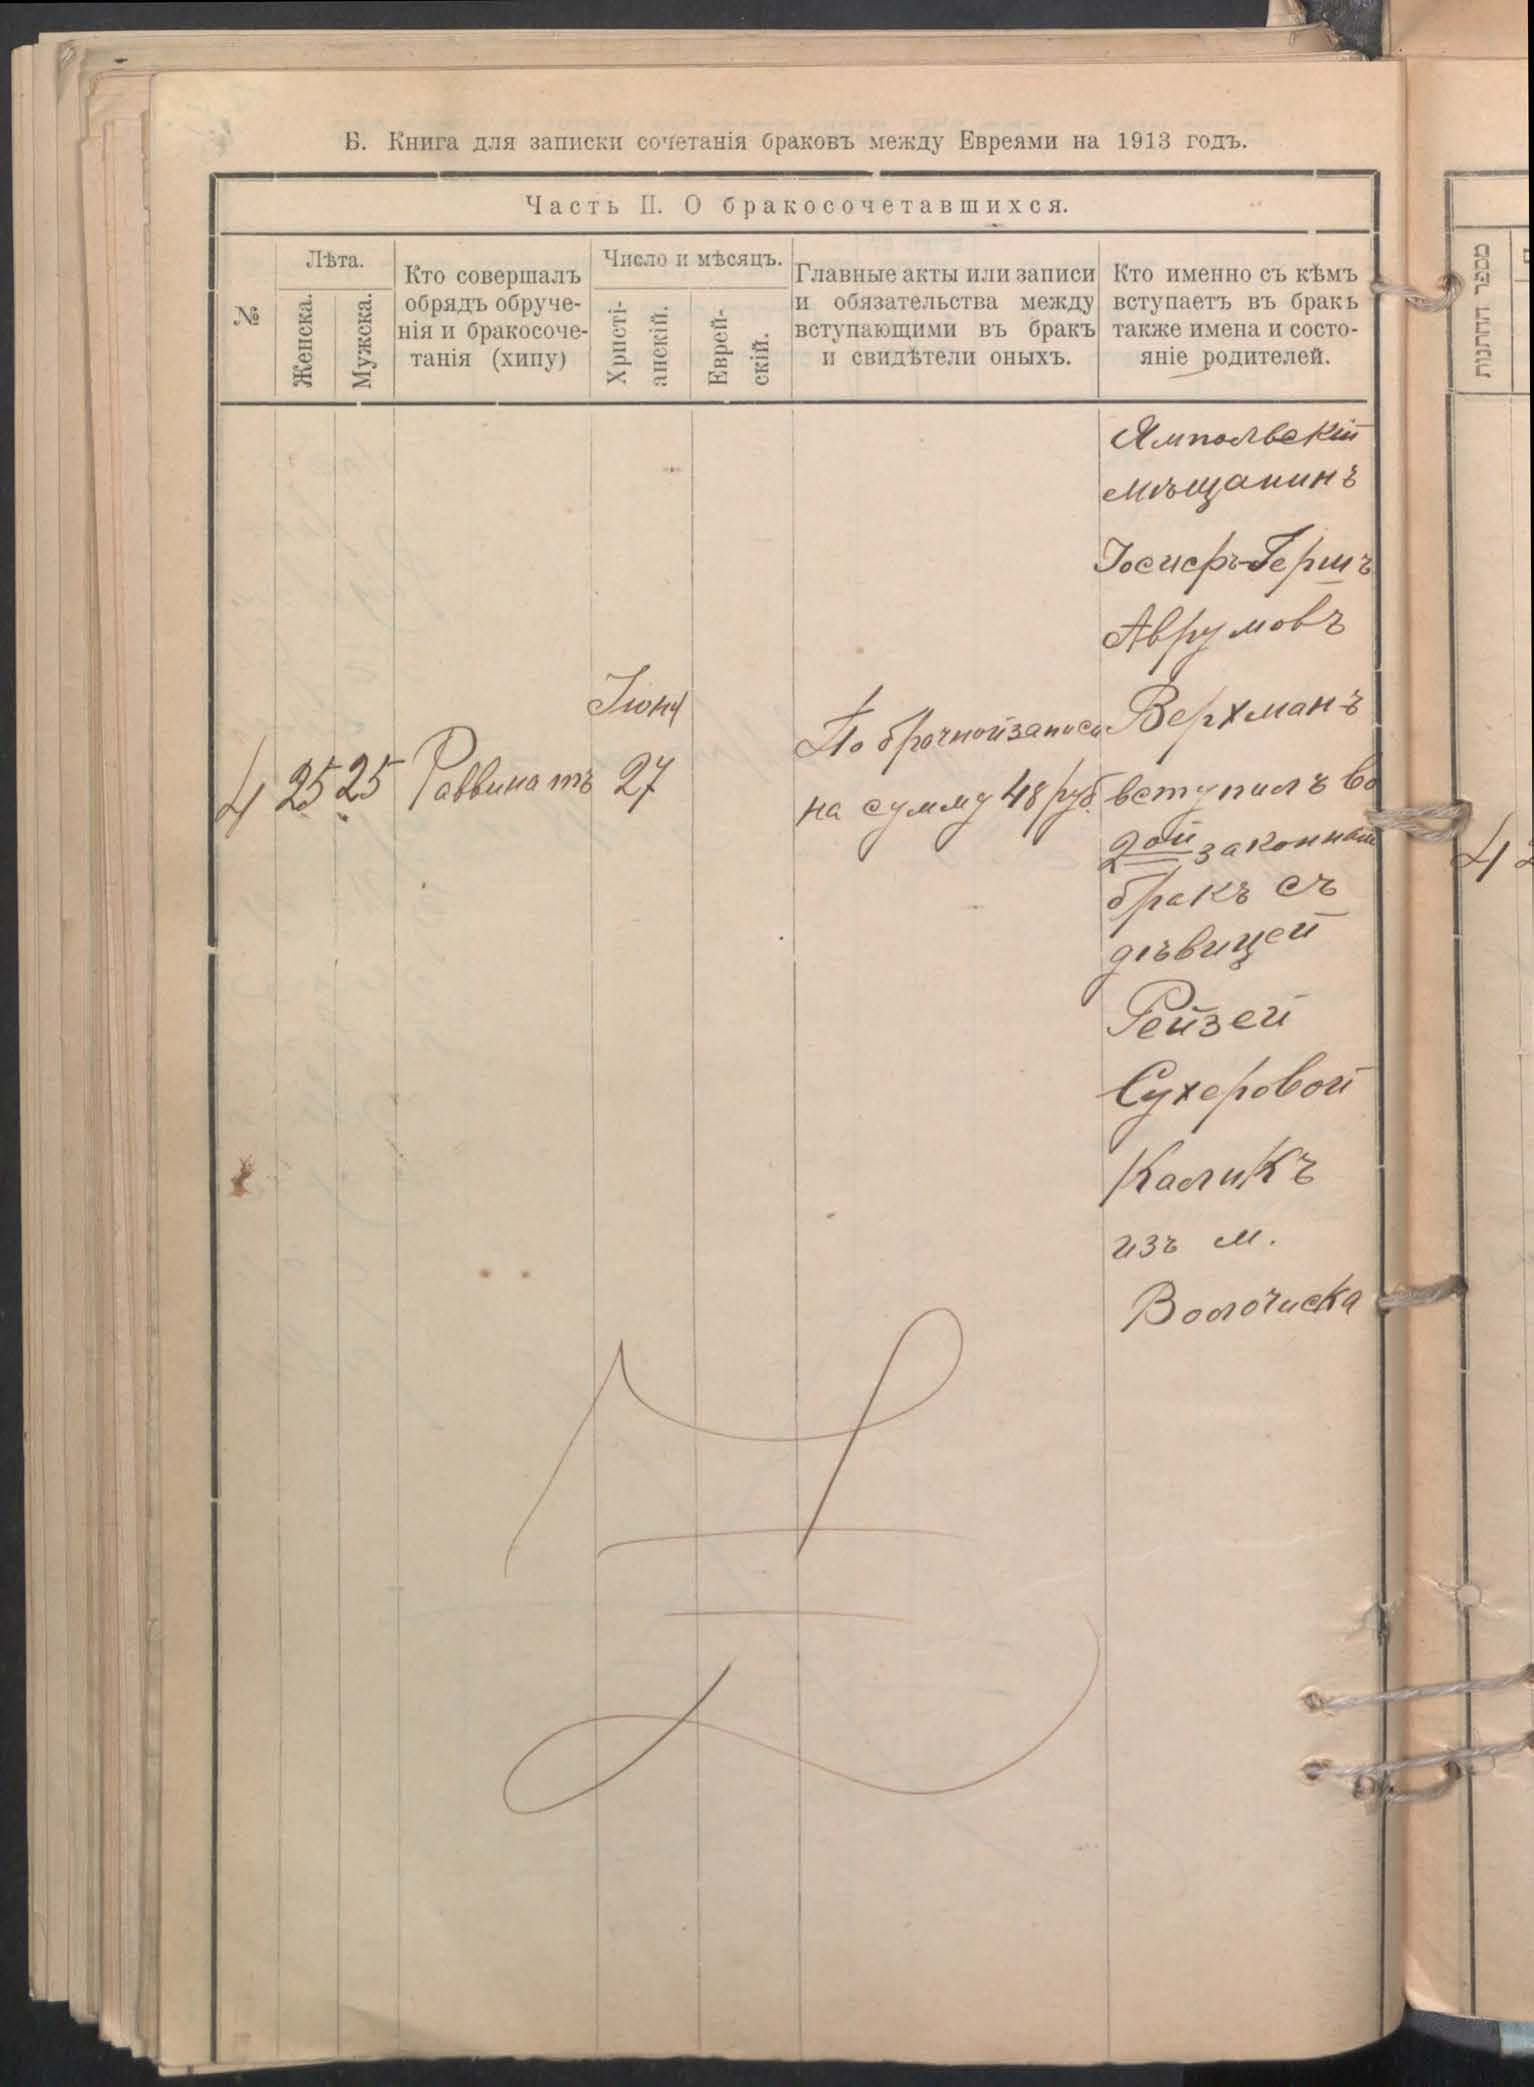 Б. Книга для записки сочетанія браковъ между Евреями на 1913 годъ.
Часть II. О бракосочетавшихся.
№
Лѣта.
Женска.
Мужска.
Кто совершалъ
обрядъ обруче-
нія и бракосоче-
танія (хипу)
Число и мѣсяцъ.
Христі-
анскій.
Еврей-
скій.
Главные акты или записи
и обязательства между
вступающими въ бракъ
и свидѣтели оныхъ.
Кто именно съ кѣмъ
вступаетъ въ бракъ
также имена и состо-
яніе родителей.
מספר החתונות
4
25
25
Раввинатъ
Іюня
27
По брачной записи
на сумму 48 руб.
Ямпольскій
мѣщанинъ
Іосифъ-Гершъ
Аврумовъ
Верхманъ
вступилъ во
2ой законный
бракъ съ
дѣвицей
Рейзей
Сухеровой
Каликъ
изъ м.
Волочиска
4